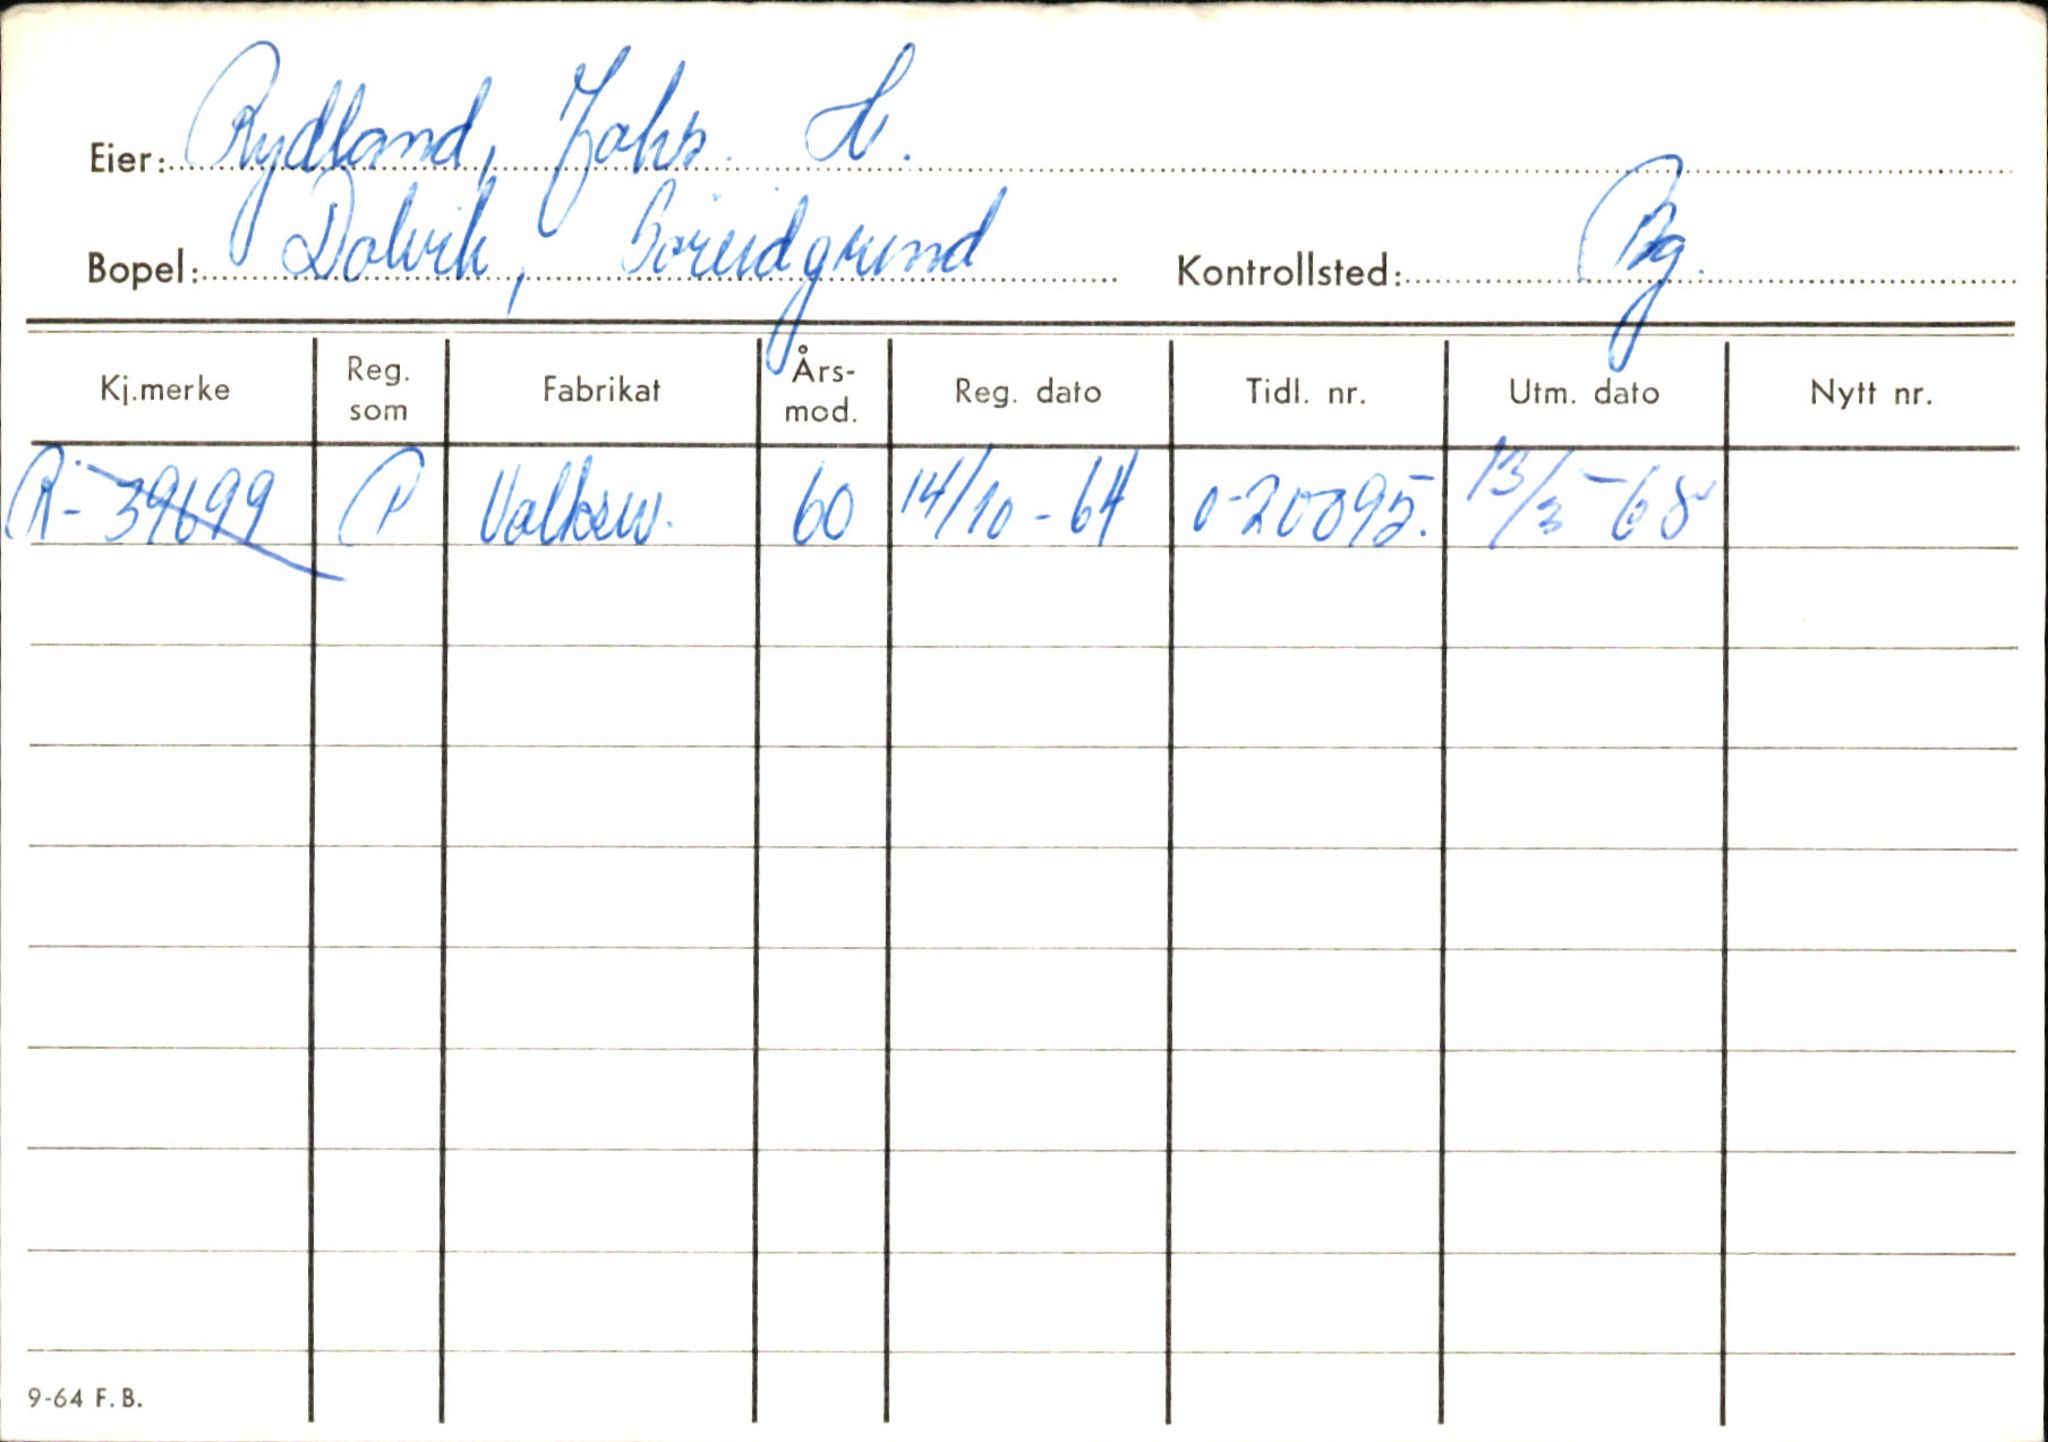 Eier: Rydland, Johs. H.
Bopel: Dolvik, Søreidgrend Kontrollsted: Bg.
Kj.merke Reg. som Fabrikat Års-mod. Reg. dato Tidl. nr. Utm. dato Nytt nr.
R-39699 P Volksw. 60 14/10-64 O-20095. 13/3-68
9-64 F.B.